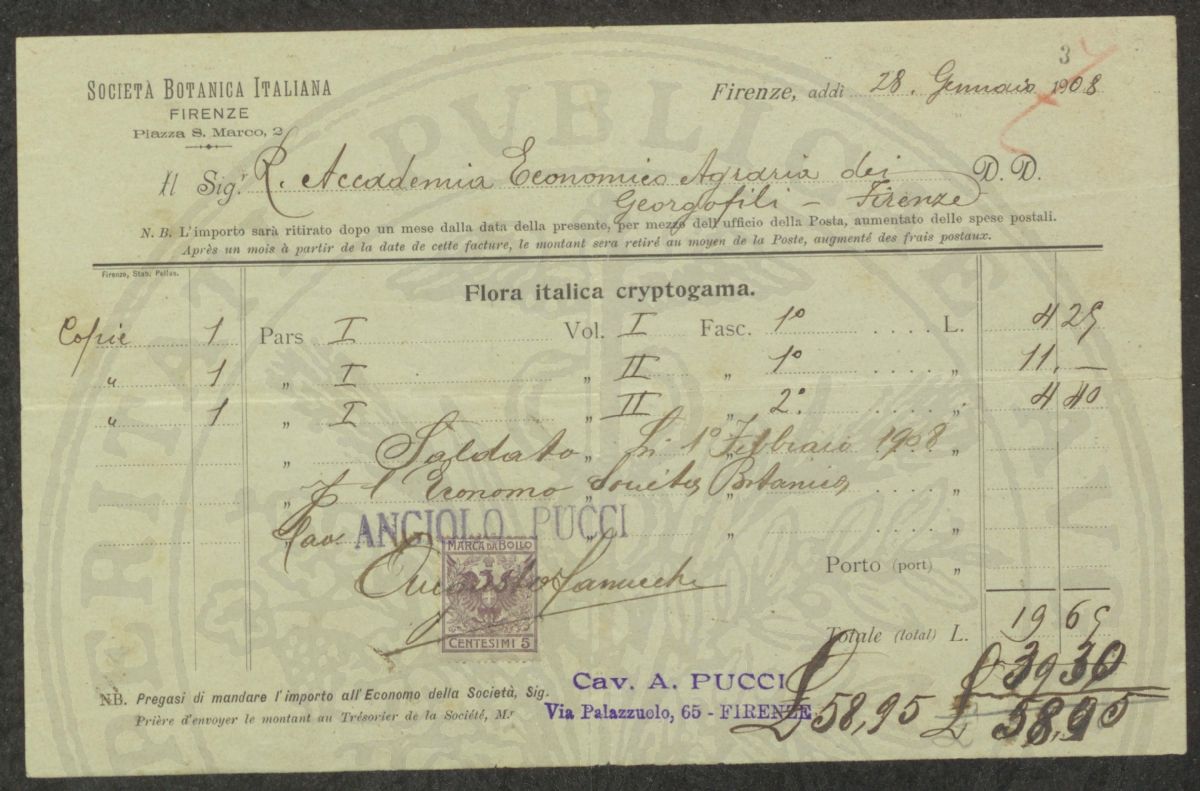 3
SOCIETÀ BOTANICA ITALIANA
FIRENZE
Piazza S. Marco, 2
Firenze, addì 28. Gennaio 1908
Il Sigr. R. Accademia Economico Agraria dei D. D.
Georgofili - Firenze
N. B. L'importo sarà ritirato dopo un mese dalla data della presente, per mezzo dell'ufficio della Posta, aumentato delle spese postali.
Après un mois à partir de la date de cette facture, le montant sera retiré au moyen de la Poste, augmenté des frais postaux.
Firenze, Stab. Pellas.
Flora italica cryptogama.
Copie 1 Pars I Vol. I Fasc. 1° .... L. 4 25
" 1 " I " II " 1° .... " 11. —
" 1 " I " II " 2° .... " 4 40
" Saldato " li 1° Febbraio 1908 "
" P l'Economo " Società Botanica .... "
Cav. ANGIOLO PUCCI " " .... "
MARCA DA BOLLO
Porto (port) "
CENTESIMI 5
Totale (total) L. 19 65
£ 39 30
£ 58,95 £ 58,95
NB. Pregasi di mandare l'importo all'Economo della Società, Sig. Cav. A. PUCCI
Prière d'envoyer le montant au Trésorier de la Société, Mr Via Palazzuolo, 65 - FIRENZE
PERITAT PVBLICAE